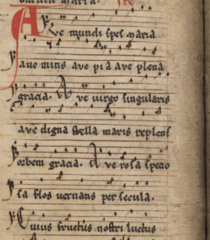 Ave mundi spes maria
aue mitis ave pia ave plena
gracia. Ave virgo singularis
ave digna stella maris replens
orbem gracia. Ave rosa specio
sa flos vernans per secula.
Cuius fructus nostri luctus